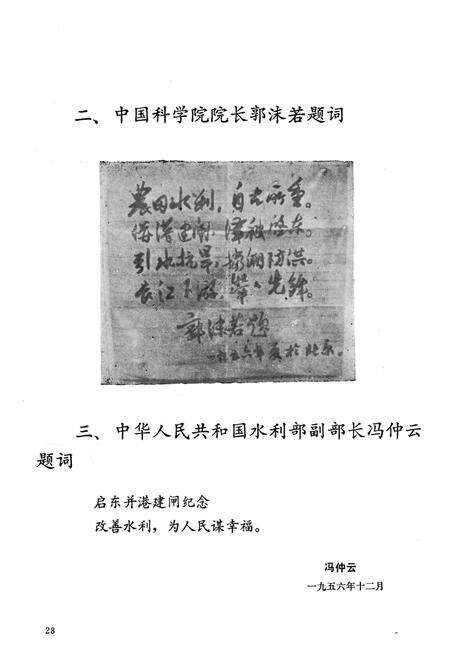 二、中国科学院院长郭沫若题词
農田水利，自古所重。
併港建闸，泽被启东。
引水抗旱，挡潮防洪。
长江下游，肇、先锋。
郭沫若题
一九五六年夏於北京。
三、中华人民共和国水利部副部长冯仲云
题词
启东并港建闸纪念
改善水利，为人民谋幸福。
冯仲云
一九五六年十二月
28